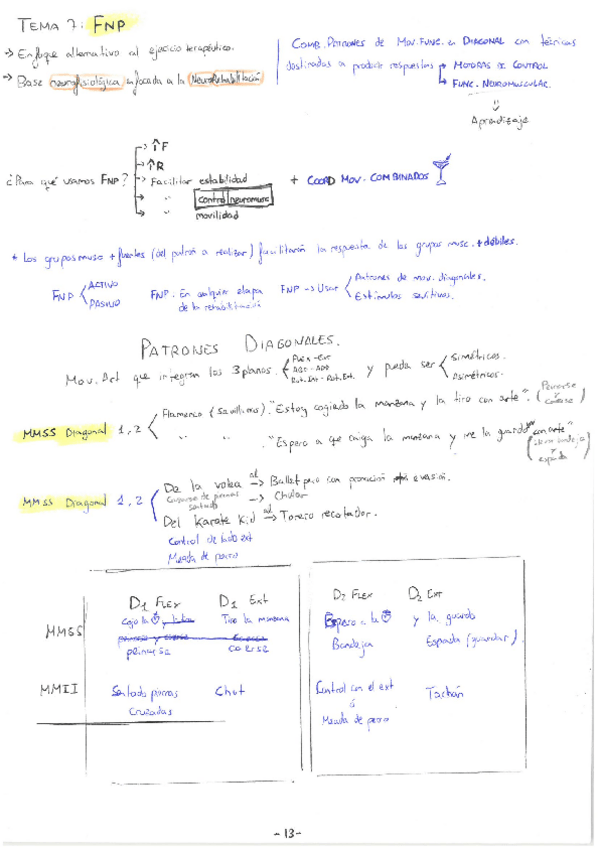 TEMA 7: FNP
→ Enfoque alternativo al ejercicio terapéutico.
→ Base neurofisiológica enfocada a la Neurorehabilitación
COMB. PATRONES DE MOV. FUNC. en DIAGONAL con técnicas
destinadas a producir respuestas → MOTORAS DE CONTROL
→ FUNC. NEUROMUSCULAR.
Aprendizaje
¿Para qué usamos FNP?
→ ↑F
→ ↑R
→ Facilitar estabilidad
→ " control neuromusc
→ " movilidad
+ COORD MOV. COMBINADOS
* Los grupos musc + fuertes (del patrón a realizar) facilitarán la respuesta de los grupos musc. + débiles.
FNP < ACTIVO
PASIVO
FNP. En cualquier etapa
de la rehabilitación
FNP → Usar < Patrones de mov. diagonales.
Estímulos sensitivos.
PATRONES DIAGONALES.
Mov. Act que integran los 3 planos. < FLEX - EXT
ABD - ADD
Rot. Int - Rot. Ext.
y pueda ser < Simétricos.
Asimétricos.
MMSS Diagonal 1, 2 < Flamenco (Sevillanas). "Estoy cogiendo la manzana y la tiro con arte". (Peinarse
y
coserse)
" " "Espero a que caiga la manzana y me la guardo con arte"
bandeja
y
espada
MMSS Diagonal 1, 2 < De la volea al → Ballet pero con evasión.
Cruzarse de piernas
sentado → Chutar
Del Karate Kid al → Torero recortador.
Control de lado ext
Meada de perro
D1 FLEX
D1 Ext
D2 FLEX
D2 EXT
MMSS
Cojo la
peinarse
Tiro la manzana
coserse
Espero a la
Bandeja
y la guardo
Espada (guardar).
MMII
Sentado piernas
Cruzadas
Chut
Control con el ext
ó
Meada de perro
Tachán
-13-